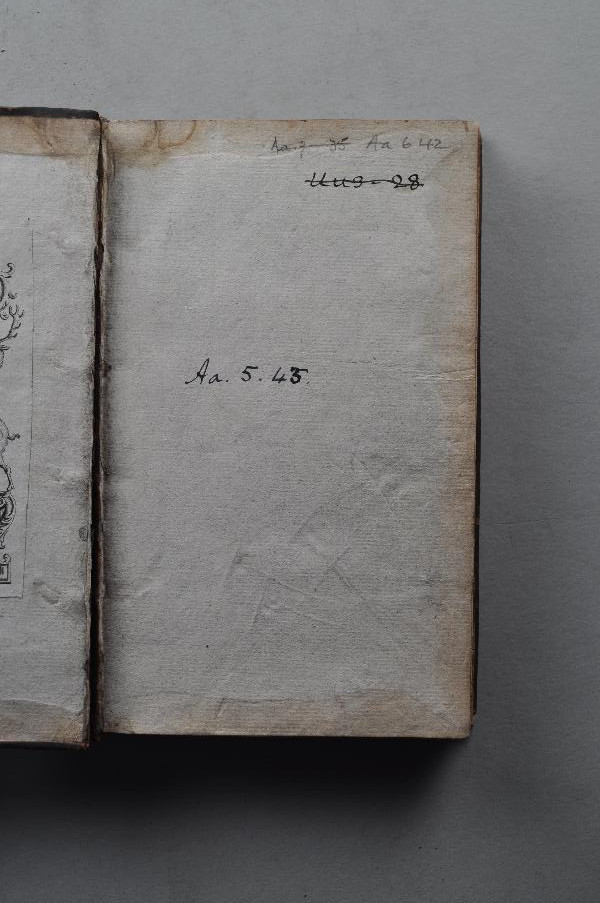 Aa.7-35 Aa 6 42
Uu9-28
Aa. 5. 43.